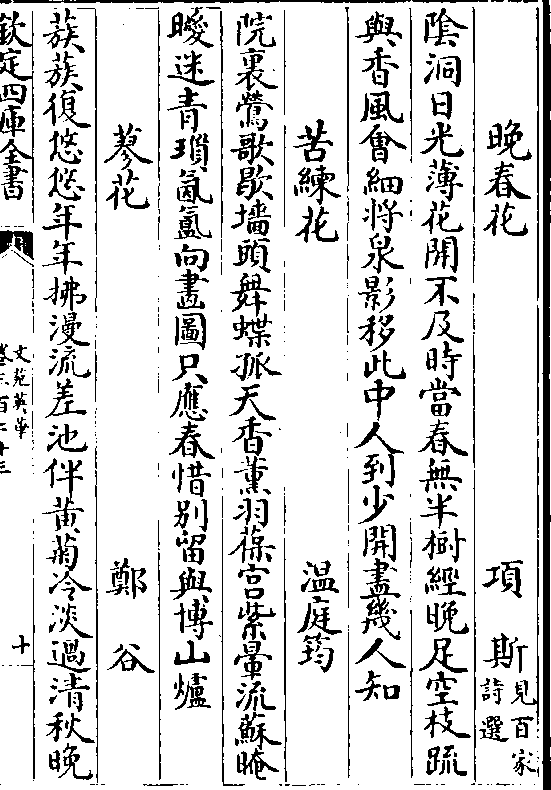 晚春花 項斯見百家詩選
陰洞日光薄花開不及時當春無半樹經晚足空枝踈
與香風會細將泉影移此中人到少開盡幾人知
苦練花 温庭筠
院裏鶯歌歇墻頭舞蝶孤天香薰羽葆宫紫暈流蘇晻
曖迷青瑣氤氲向畫圖只應春惜别留與博山爐
蓼花 鄭谷
蔟蔟復悠悠年年拂漫流差池伴黄菊冷淡過清秋晚
欽定四庫全書
文苑英華
卷三百二十三
十